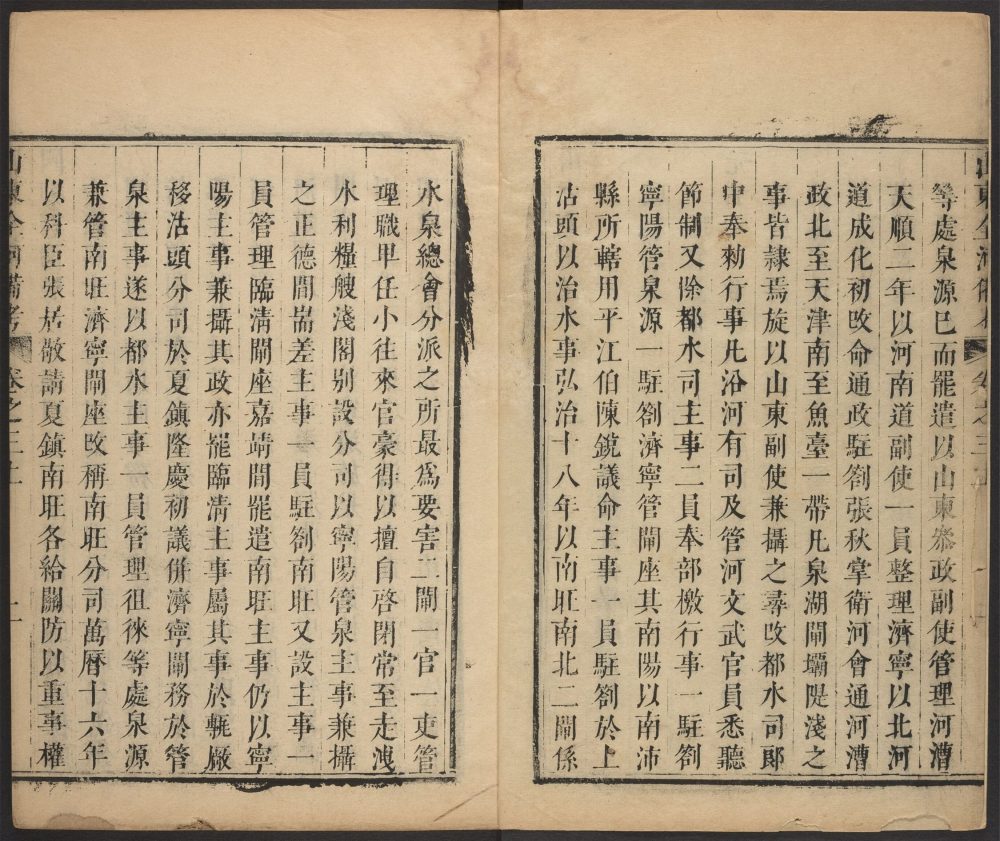 山東全河備考
等處泉源已而罷遣以山東叅政副使管理河漕
天順二年以河南道副使一員整理濟寧以北河
道成化初改命通政駐劄張秋掌衛河會通河漕
政北至天津南至魚臺一帶凡泉湖閘壩隄淺之
事皆隸焉旋以山東副使兼攝之尋改都水司郎
中奉勅行事凡沿河有司及管河文武官員悉聽
節制又除都水司主事二員奉部檄行事一駐劄
寧陽管泉源一駐劄濟寧管閘座其南陽以南沛
縣所轄用平江伯陳銳議命主事一員駐劄於上
沽頭以治水事弘治十八年以南旺南北二閘係
水泉總會分派之所最爲要害二閘一官一吏管
理職卑任小往來官豪得以擅自啓閉常至走洩
水利糧艘淺閣别設分司以寧陽管泉主事兼攝
之正德間耑差主事一員駐劄南旺又設主事一
員管理臨淸閘座嘉靖間罷遣南旺主事仍以寧
陽主事兼攝其政亦罷臨淸主事屬其事於甎厰
移沽頭分司於夏鎮隆慶初議併濟寧閘務於管
泉主事遂以都水主事一員管理徂徠等處泉源
兼管南旺濟寧閘座改稱南旺分司萬曆十六年
以科臣張居敬請夏鎮南旺各給關防以重事權
山東全河備考 卷之三上 十一